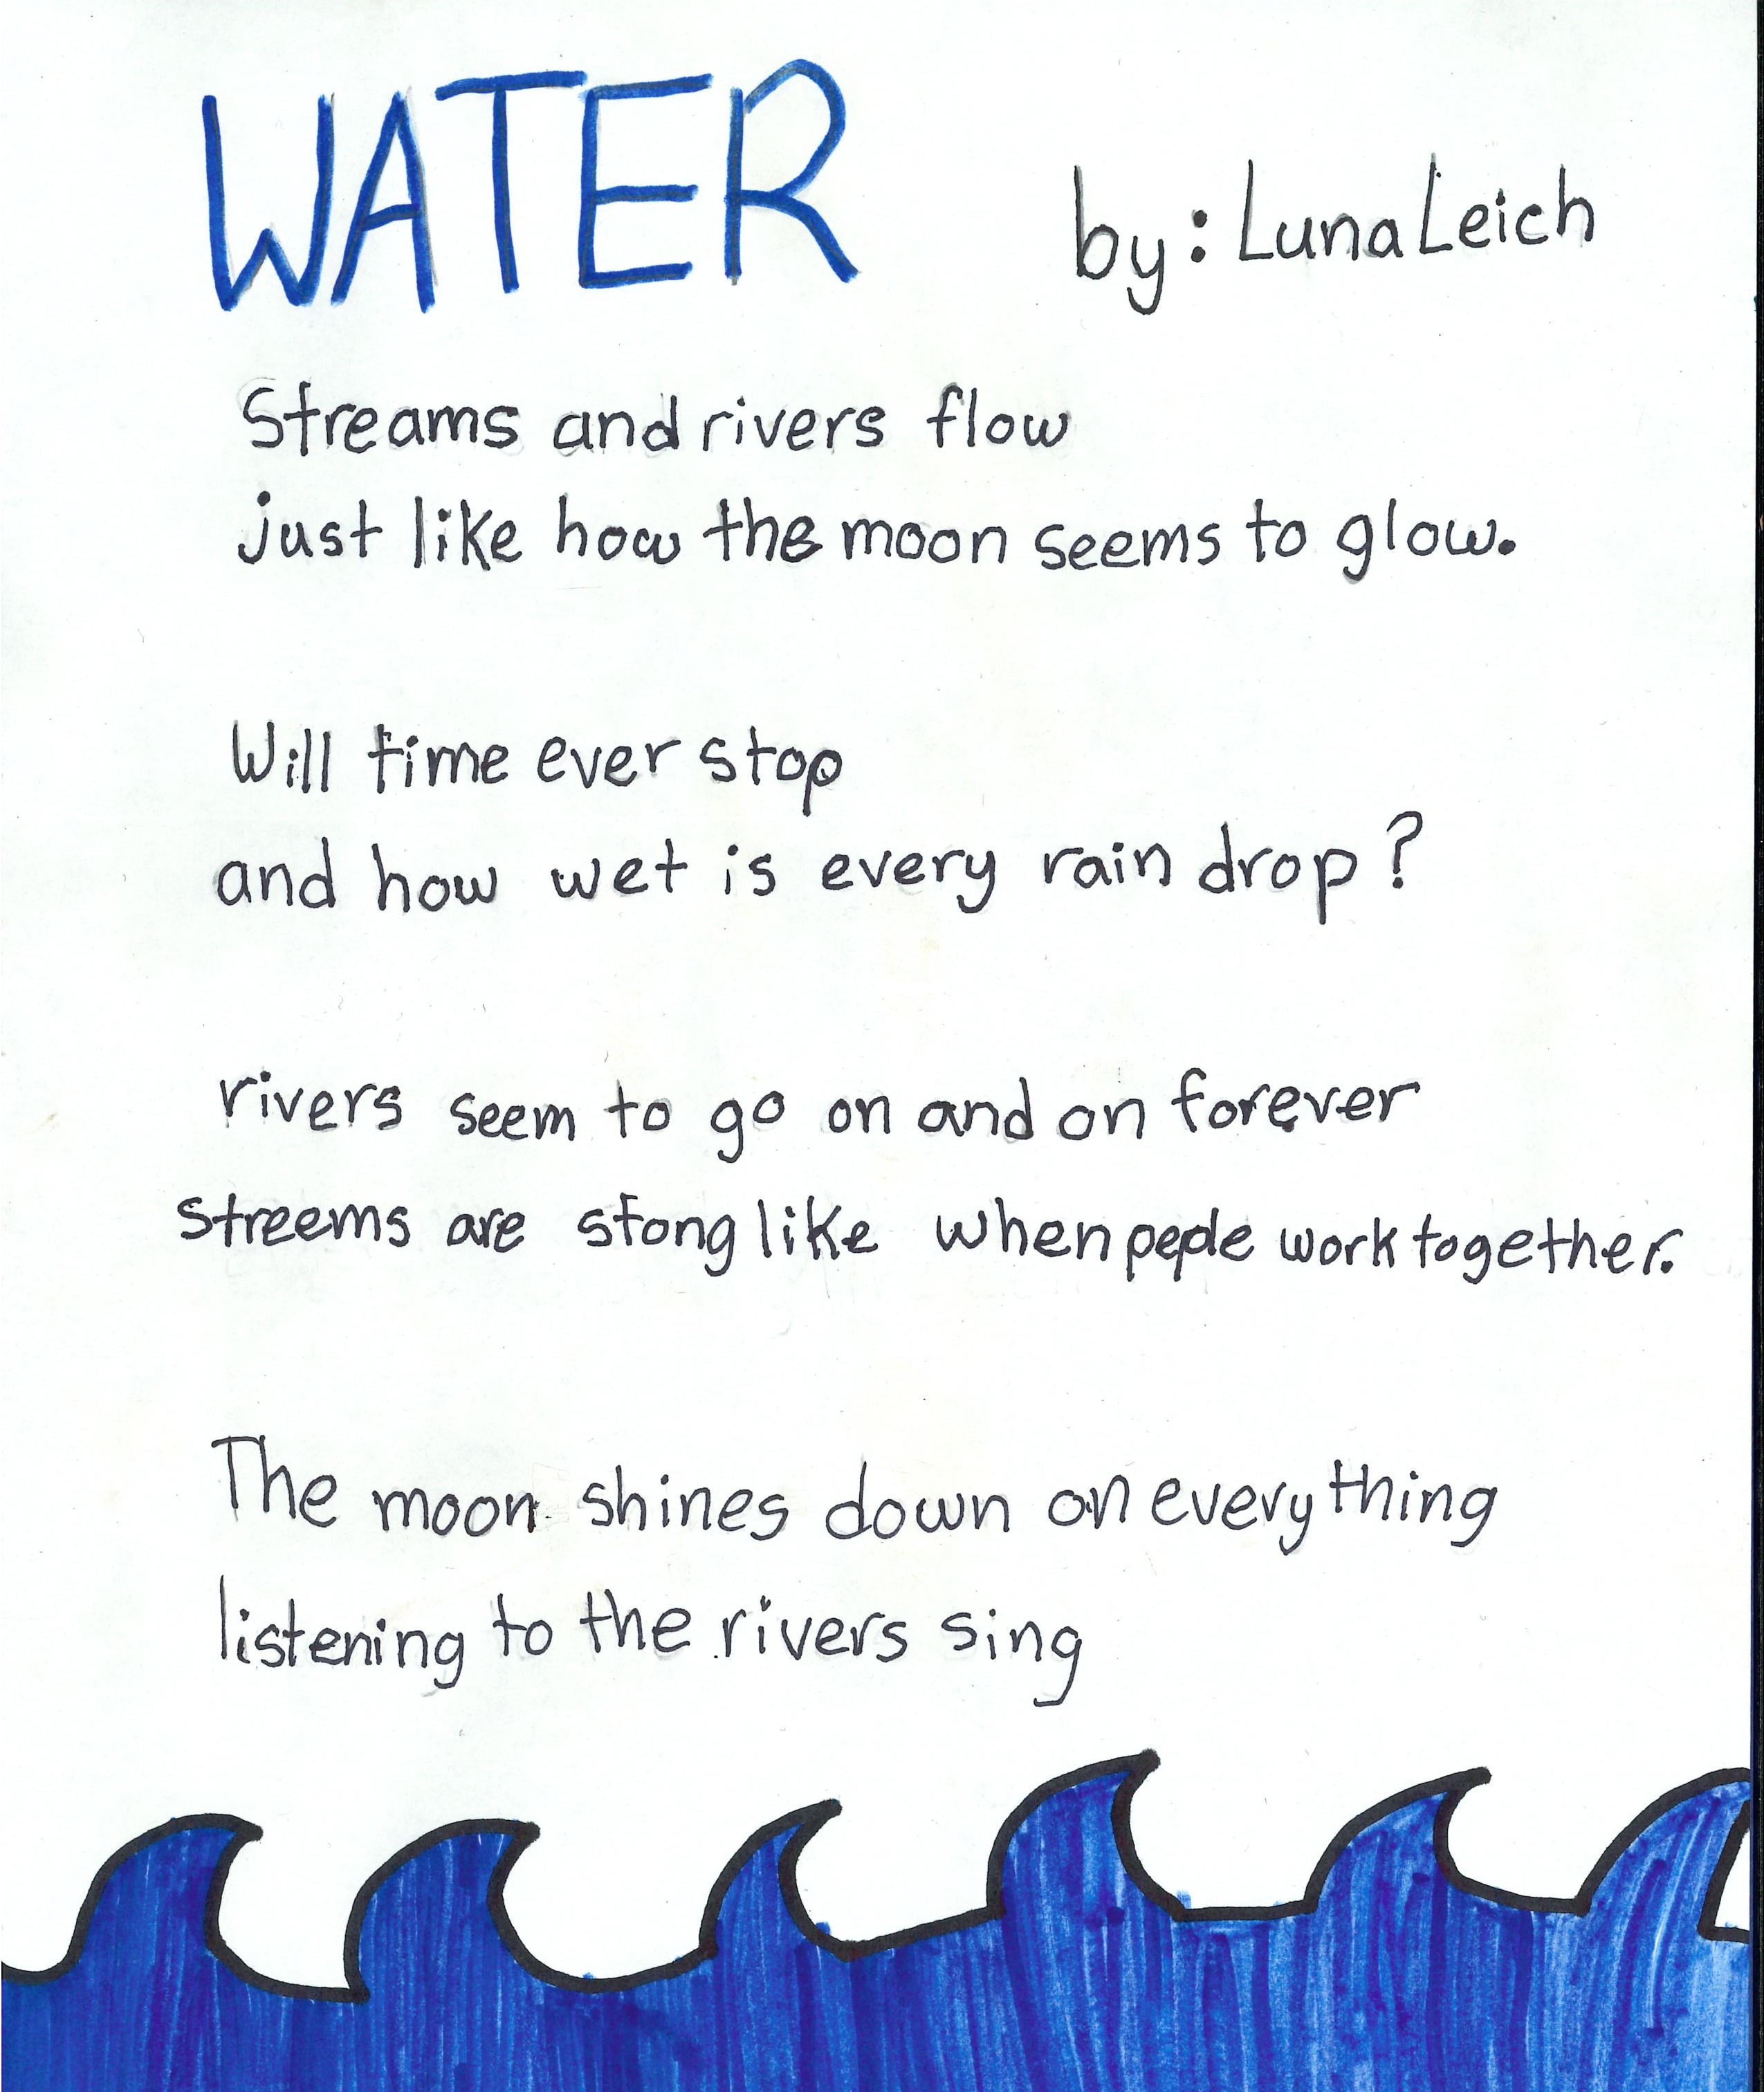 WATER
by: Luna Leich
Streams and rivers flow
just like how the moon seems to glow.
Will time ever stop
and how wet is every rain drop?
rivers seem to go on and on forever
streems are stong like when pepole work together.
The moon shines down on everything
listening to the rivers sing